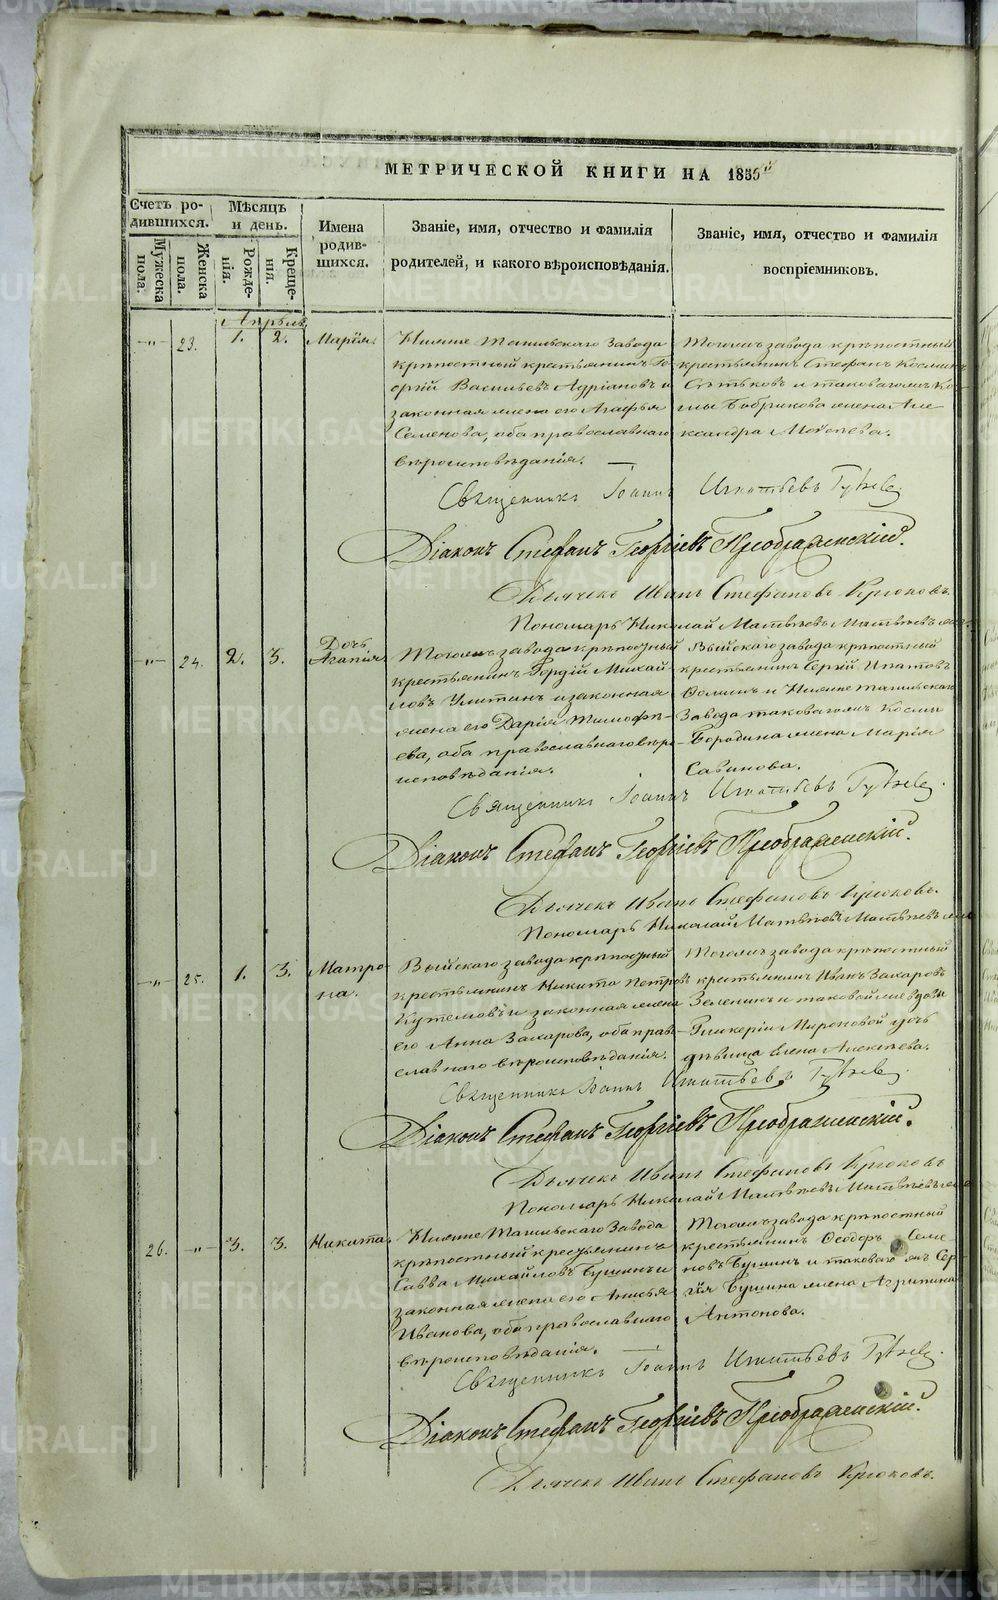 МЕТРИЧЕСКОЙ КНИГИ НА 1855
Счетъ ро-
дившихся.
Мужеска
пола.
Женска
пола.
Мѣсяцъ
и день.
Рожде-
нія.
Креще-
нія.
Имена
родив-
шихся.
Званіе, имя, отчество и фамилія
родителей, и какого вѣроисповѣданія.
Званіе, имя, отчество и фамилія
воспріемниковъ.
Апрѣль
-"- 23. 1. 2. Марія.
Нижне Тагильскаго Завода
крѣпостный крестьянинъ Ге-
оргій Васильевъ Адріановъ и
законная жена его Агафья
Семенова, оба православнаго
вѣроисповѣданія. —
Тогожъ завода крѣпостный
крестьянинъ Стефанъ Косминъ
и таковагожъ Ко-
змы Бобрикова жена Але
ксандра Мокѣева.
Священникъ Іоаннъ Игнатьевъ
Діаконъ Стефанъ Георгіевъ Преображенскій.
Дьячекъ Иванъ Стефановъ Крюковъ.
Пономарь Николай Матвѣевъ Матвѣевъ
-"- 24. 2. 3. Дочь
Агапія
Тогожъ завода крѣпостный
крестьянинъ Гордій Михай
ловъ Улитинъ и законная
жена его Дарія Тимофѣ-
ева, оба православнаго вѣро-
исповѣданія.
Выйскаго завода крѣпостный
крестьянинъ Сергій Ипатовъ
Ѳоминъ и Нижне тагильскаго
Завода таковагожъ Космы
Бородина жена Марія
Савинова.
Священникъ Іоаннъ Игнатьевъ
Діаконъ Стефанъ Георгіевъ Преображенскій.
Дьячекъ Иванъ Стефановъ Крюковъ.
Пономарь Николай Матвѣевъ Матвѣевъ
-"- 25. 1. 3. Матро-
на.
Выйскаго завода крѣпостный
крестьянинъ Никита Петровъ
Кутемовъ и законная жена
его Анна Захарова, оба право-
славнаго вѣроисповѣданія.
Тогожъ завода крѣпостный
крестьянинъ Иванъ Захаровъ
Зеленинъ и таковойже вдовы
Гликеріи Мироновой дочь
дѣвица Елена Алексѣева.
Священникъ Іоаннъ Игнатьевъ
Діаконъ Стефанъ Георгіевъ Преображенскій.
Дьячекъ Иванъ Стефановъ Крюковъ
Пономарь Николай Матвѣевъ Матвѣевъ
26. -"- 3. 3. Никита.
Нижне Тагильскаго Завода
крѣпостный крестьянинъ
Савва Михайловъ Бушинъ и
законная жена его Анисья
Иванова, оба православнаго
вѣроисповѣданія.
Тогожъ завода крѣпостный
крестьянинъ Ѳеодоръ Семе-
новъ Бушинъ и таковаго жъ Сер-
гія Бушина жена Агрипина
Антонова.
Священникъ Іоаннъ Игнатьевъ
Діаконъ Стефанъ Георгіевъ Преображенскій.
Дьячекъ Иванъ Стефановъ Крюковъ.
METRIKI.GASO-URAL.RU